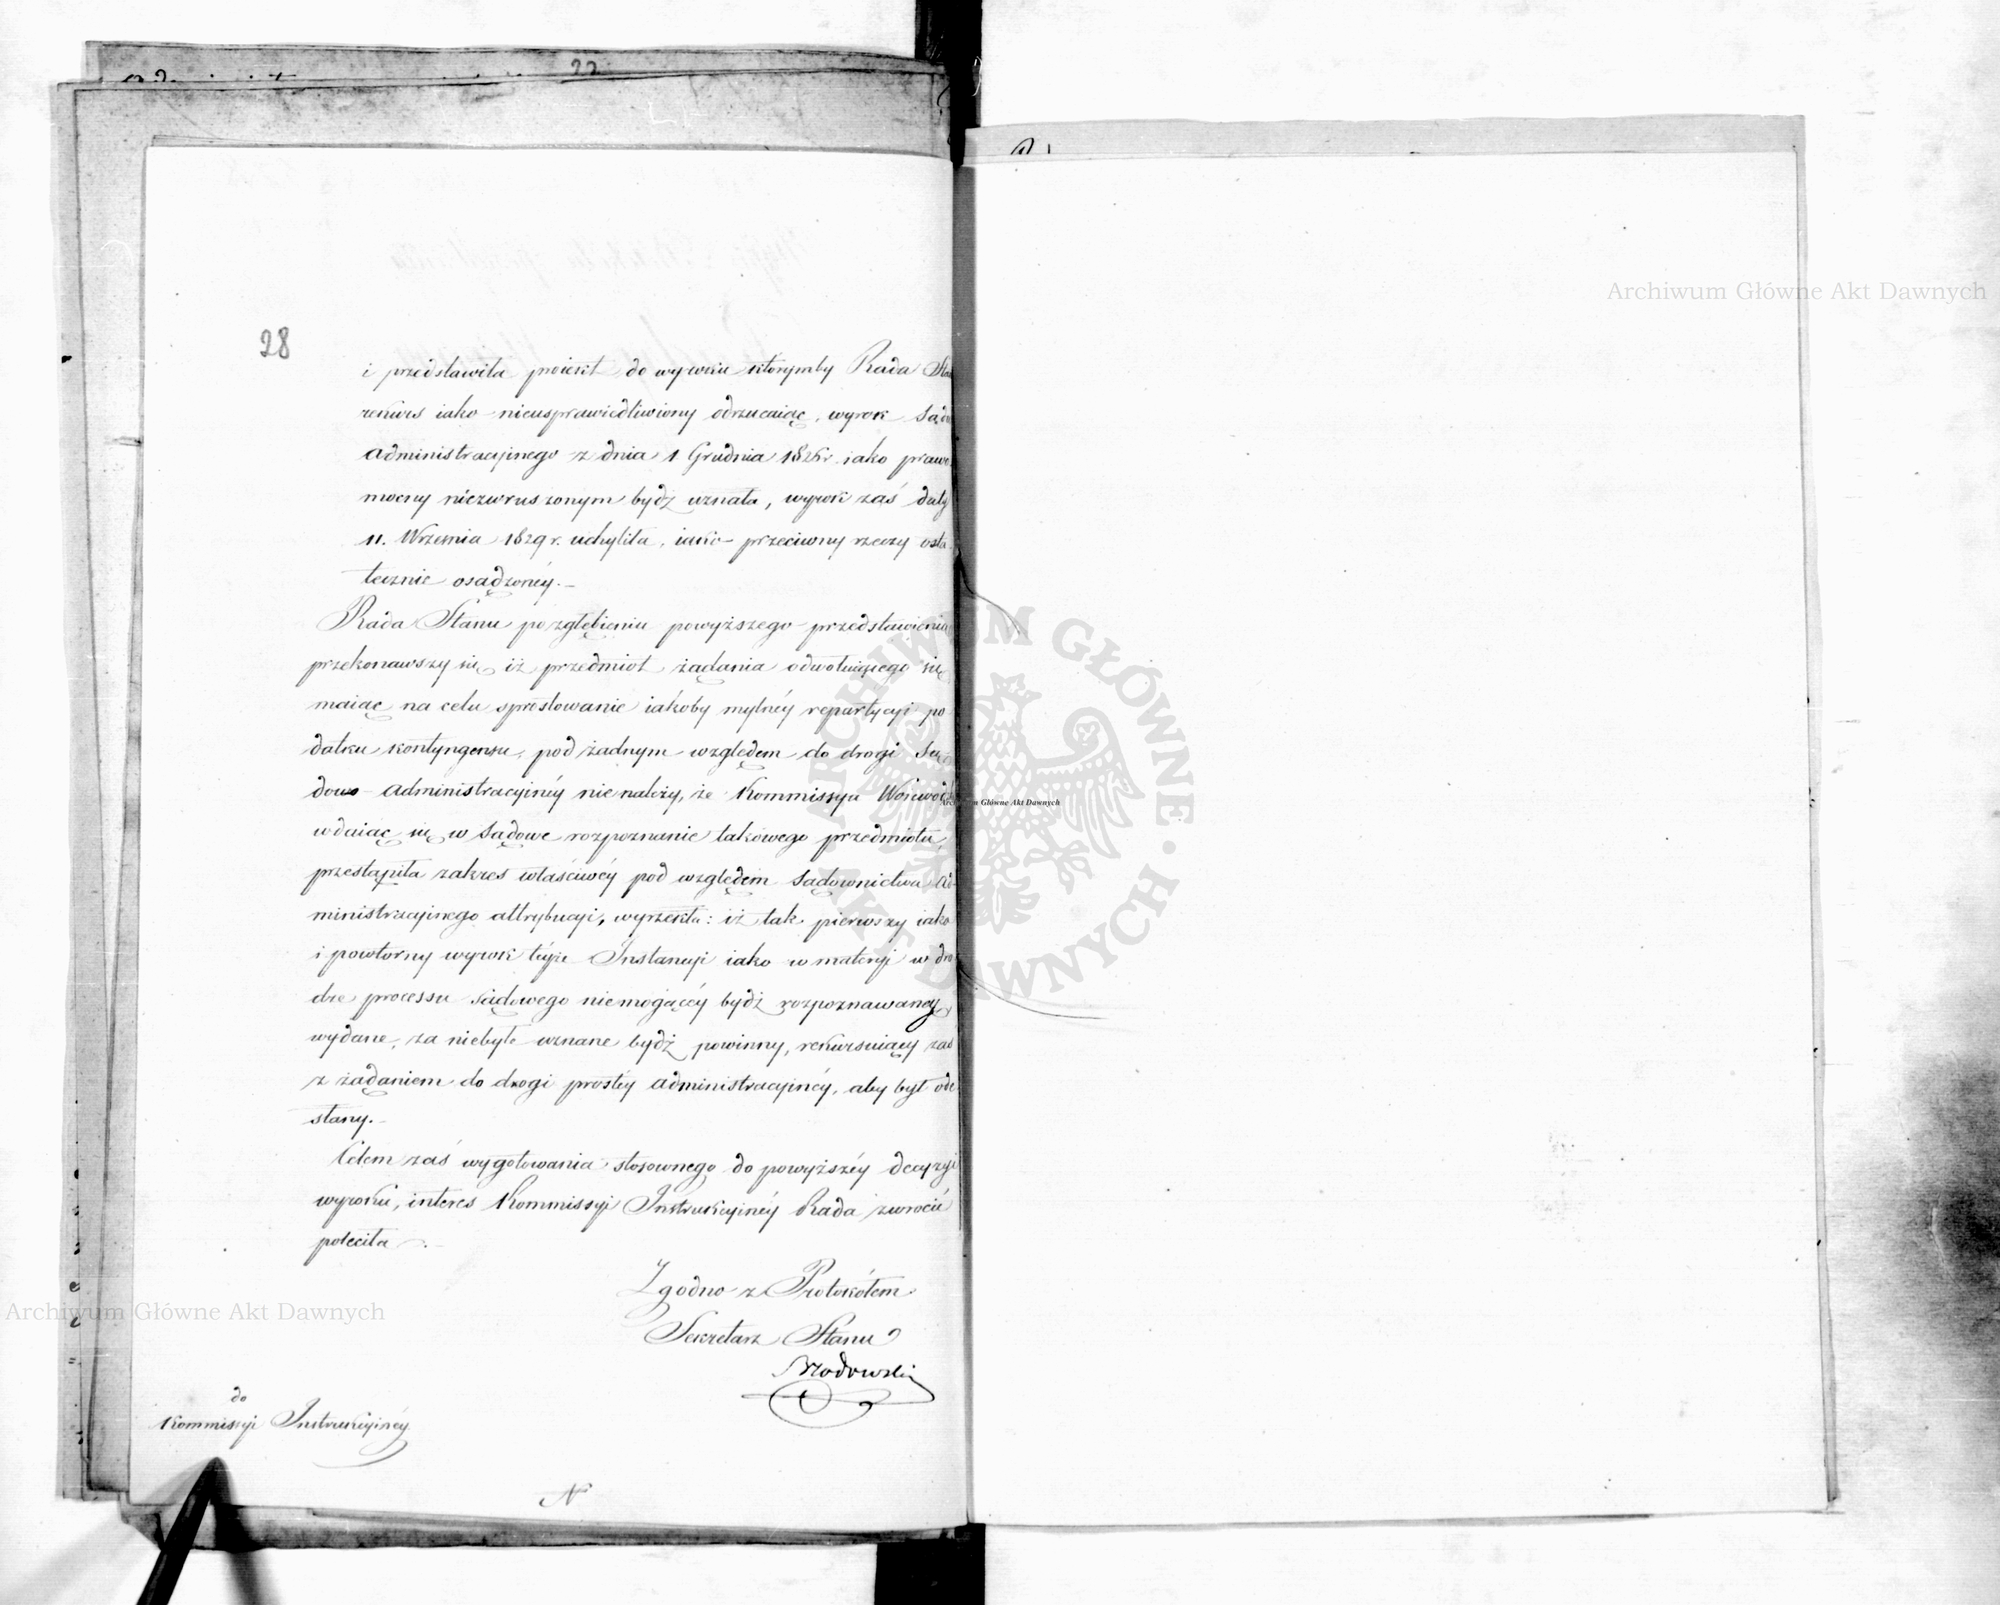 22
28
i przedstawiła proiekt do wyroku którymby Rada
rekurs iako nieusprawiedliwiony odrzucaiąc, wyrok Sądu
administracyinego z dnia 1 Grudnia iako prawo
mocny niezwruszonym bydź uznała, wyrok zaś daty
11. Września 1829 r. uchyliła, iako przeciwny rzeczy osta
tecznie osądzonéy.—
Rada Stanu po zgłębieniu powyższego przedstawienia
przekonawszy się iż przedmiot żądania odwołuiącego się
maiąc na celu sprostowanie iakoby mylnéy repartycyi po
datku kontyngensu, pod żadnym względem do drogi Są
dowo administracyinéy nie należy, że Kommissya Woiewódz
wdaiąc się w Sądowe rozpoznanie takowego przedmiotu,
przestąpiła zakres właściwéy pod względem Sądownictwa ad
ministracyinego attrybucyi, wyrzekła: iż tak pierwszy iako
i powtórny wyrok téyże Instancyi iako w materyi w dro
dze processu Sądowego niemogącéy bydź rozpoznawanéy
wydane, za niebyłe uznane bydź powinny, rekursuiący zaś
z żądaniem do drogi prostéy administracyinéy, aby był ode
słany.—
Celem zaś wygotowania stosownego do powyższéy decyzyi
wyroku, interes Kommissyi Instrukcyinéy Rada zwrócić
poleciła.—
Zgodno z Protokółem
Sekretarz Stanu
do
Kommissyi Instrukcyinéy
N
Archiwum Główne Akt Dawnych
Archiwum Główne Akt Dawnych
Archiwum Główne Akt Dawnych
ARCHIWUM GŁÓWNE AKT DAWNYCH